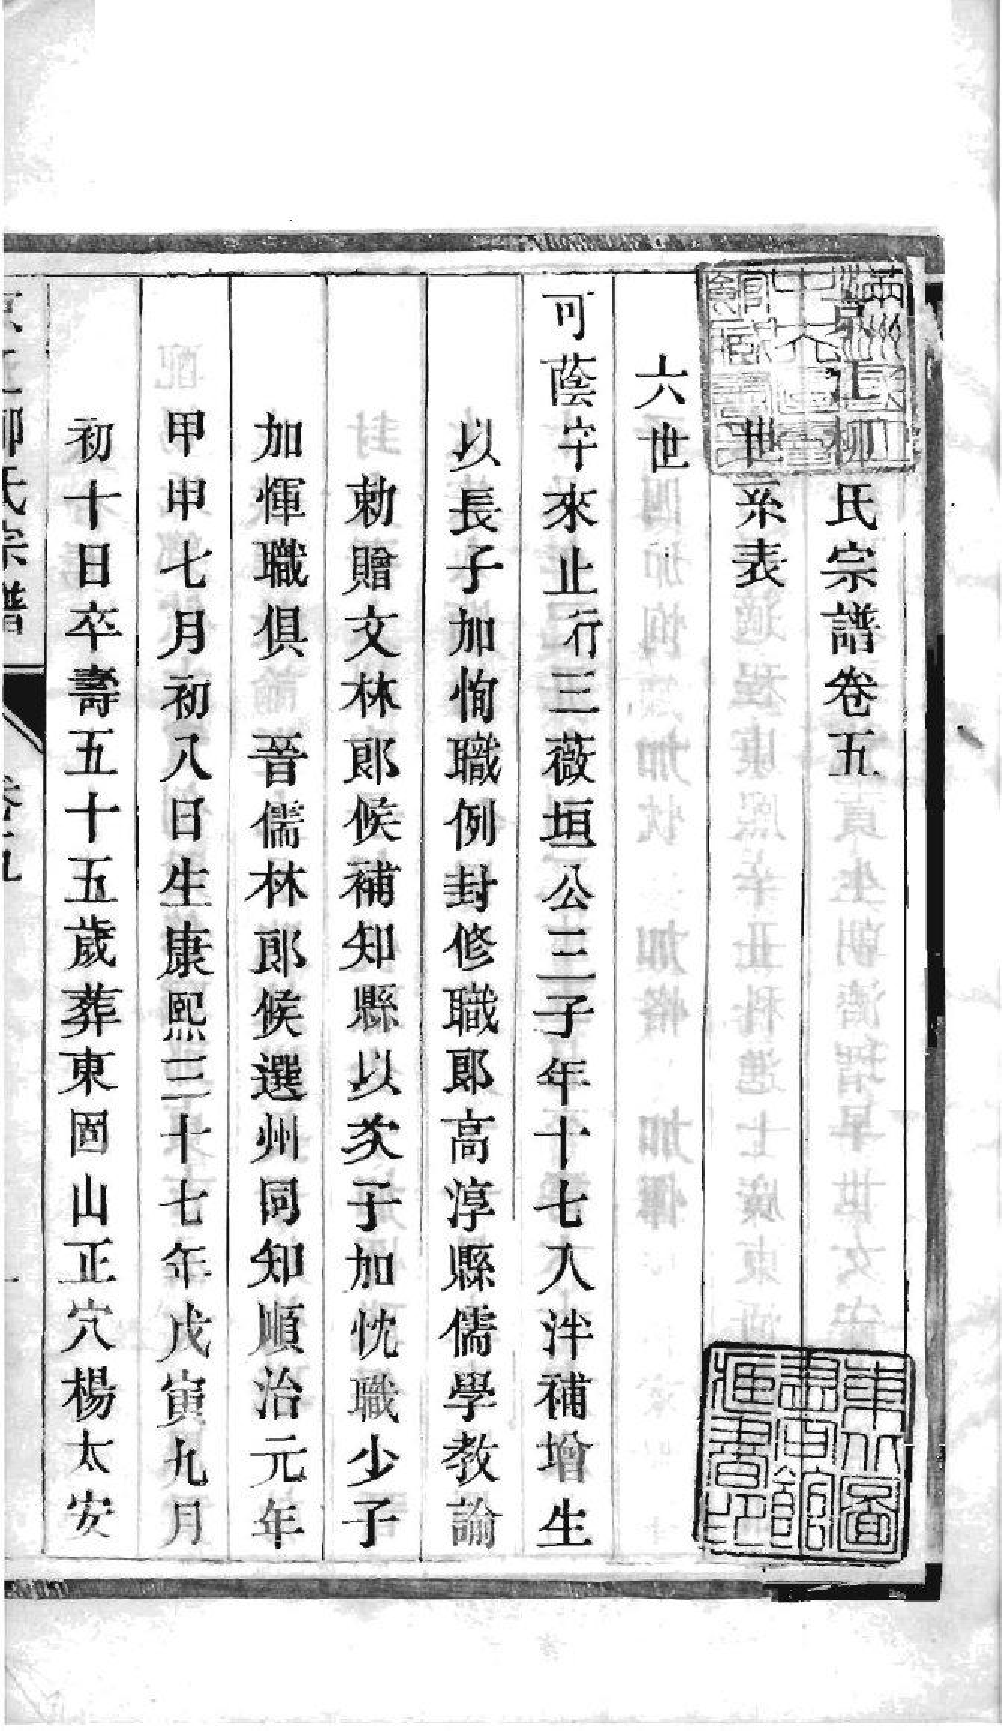 京江柳氏宗譜卷五
世系表
六世
可蔭字來止行三薇垣公三子年十七入泮補增生
以長子加恂職例封修職郎高淳縣儒學教諭
勅贈文林郎候補知縣以次子加忱職少子
加惲職俱 晉儒林郎候選州同知順治元年
甲申七月初八日生康熙三十七年戊寅九月
初十日卒壽五十五歲葬東圌山正穴楊太安
京江柳氏宗譜
卷五
一